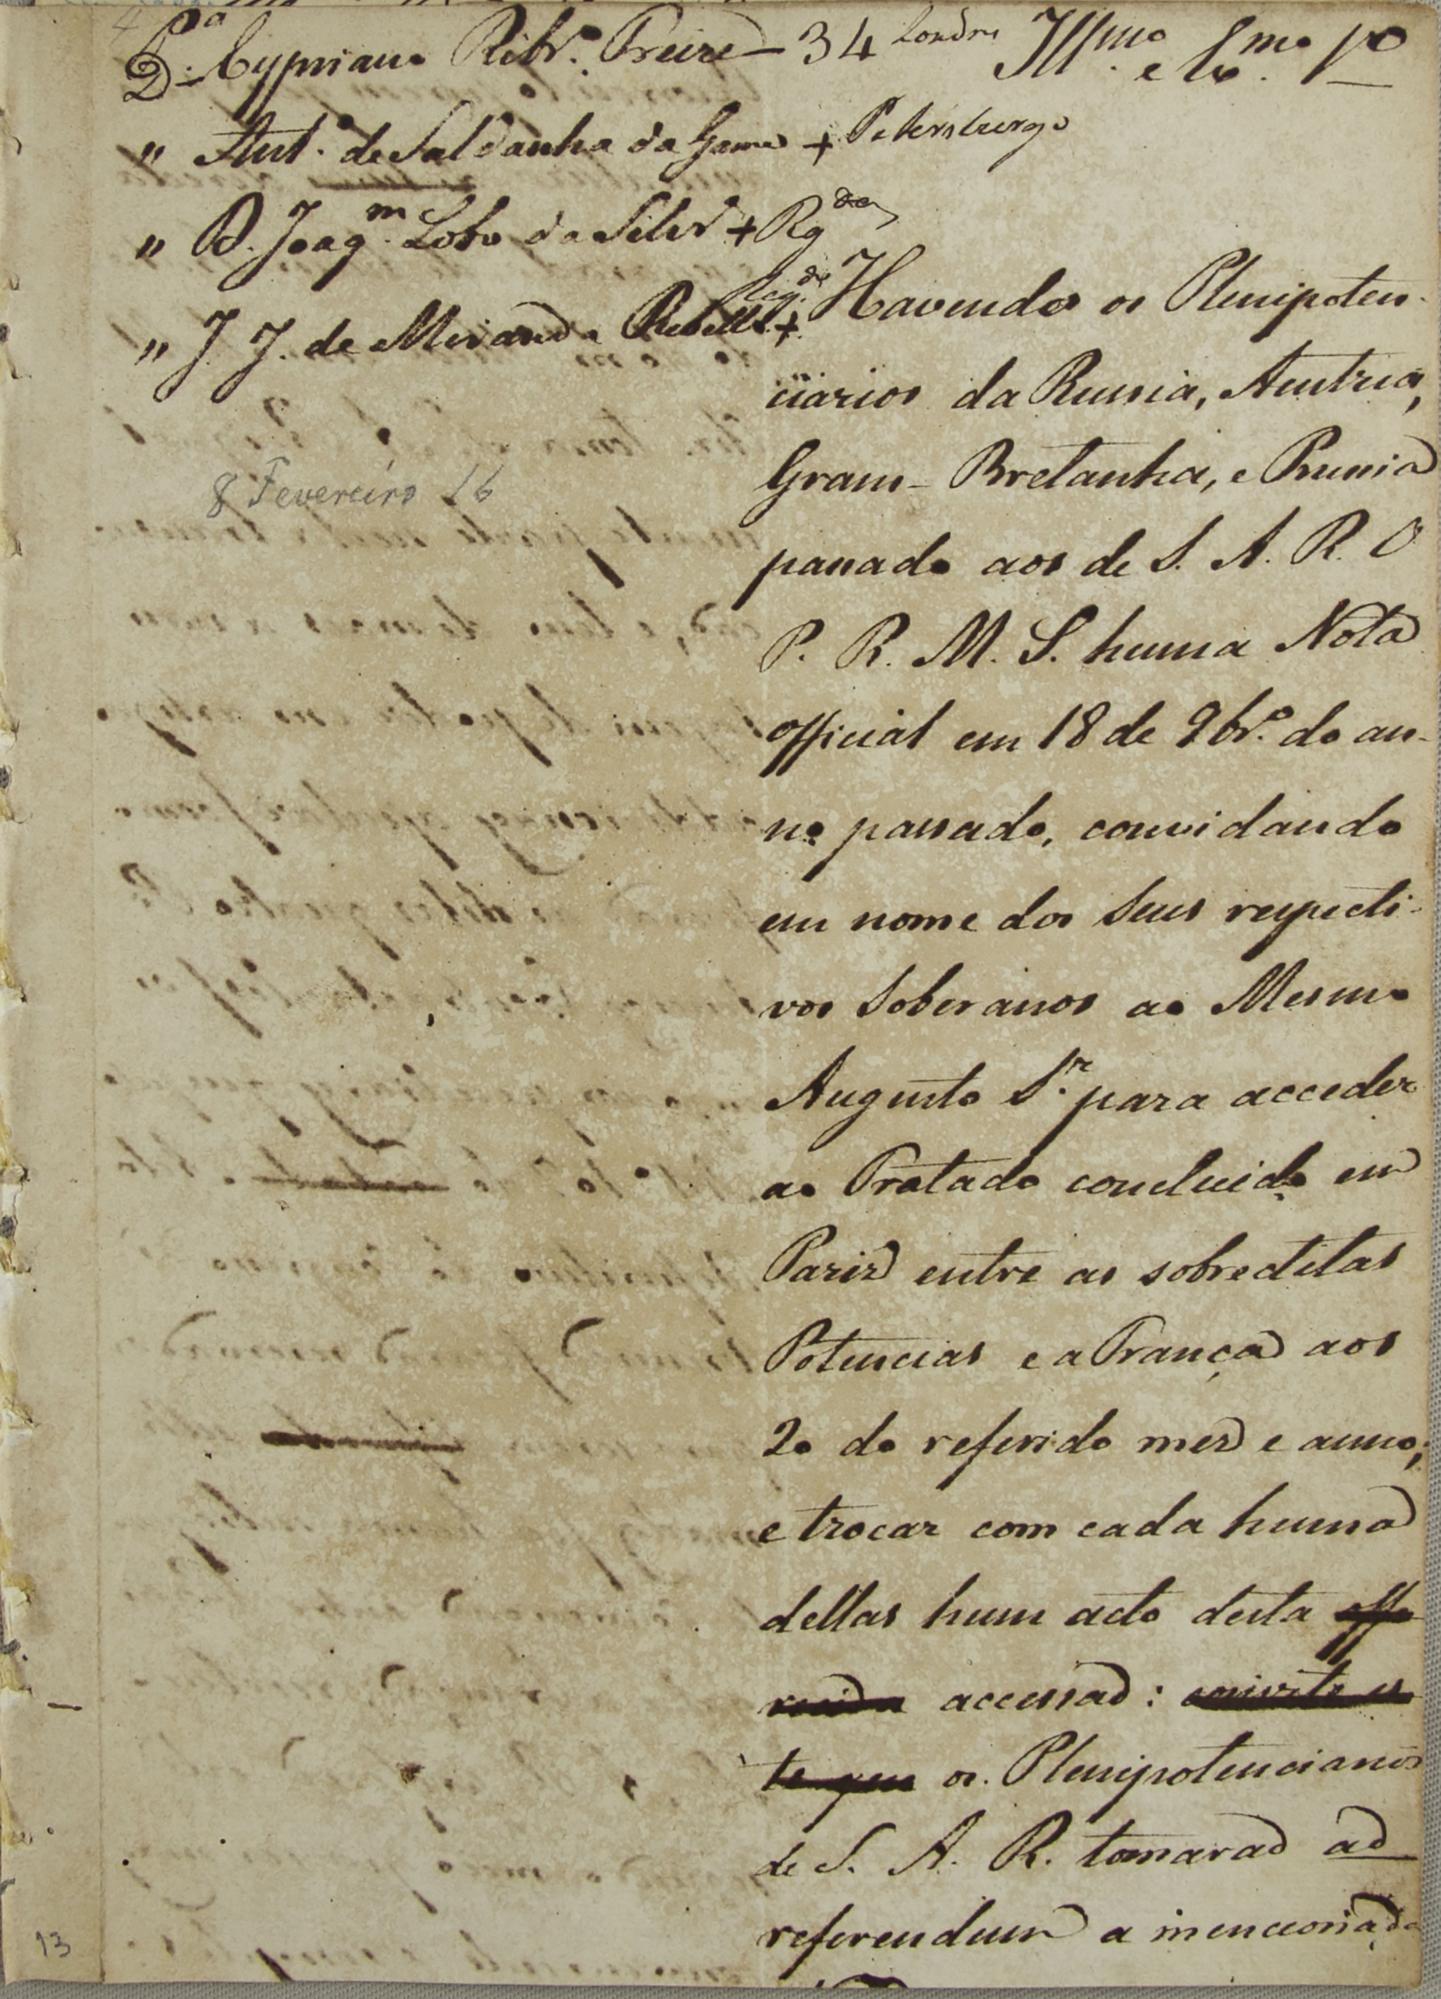 Pa
D. Cypriano Ribr.o Freire — 34 Londres Illmo e Exmo Sr
" Ant.o de Saldanha da Gama + Petersburgo
" D. Joaq.m Lobo da Silvr +
" J. J. de Miranda Rebello +
8 Fevereiro 16
Havendo os Plenipoten-
ciarios da Russia, Austria,
Gram-Bretanha, e Prussia
passado aos de S. A. R. O
P. R. N. S. huma Nota
official em 18 de 9br.o do an-
no passado, convidando
em nome dos seus respecti-
vos Soberanos ao Mesmo
Augusto Sr. para acceder
ao Tratado concluido em
Pariz entre as sobreditas
Potencias e a França aos
20 do referido mez e anno;
e trocar com cada huma
dellas hum acto desta offe
recida accessaõ: convite es
te que os Plenipotenciarios
de S. A. R. tomaraõ ad
referendum a mencionada
13